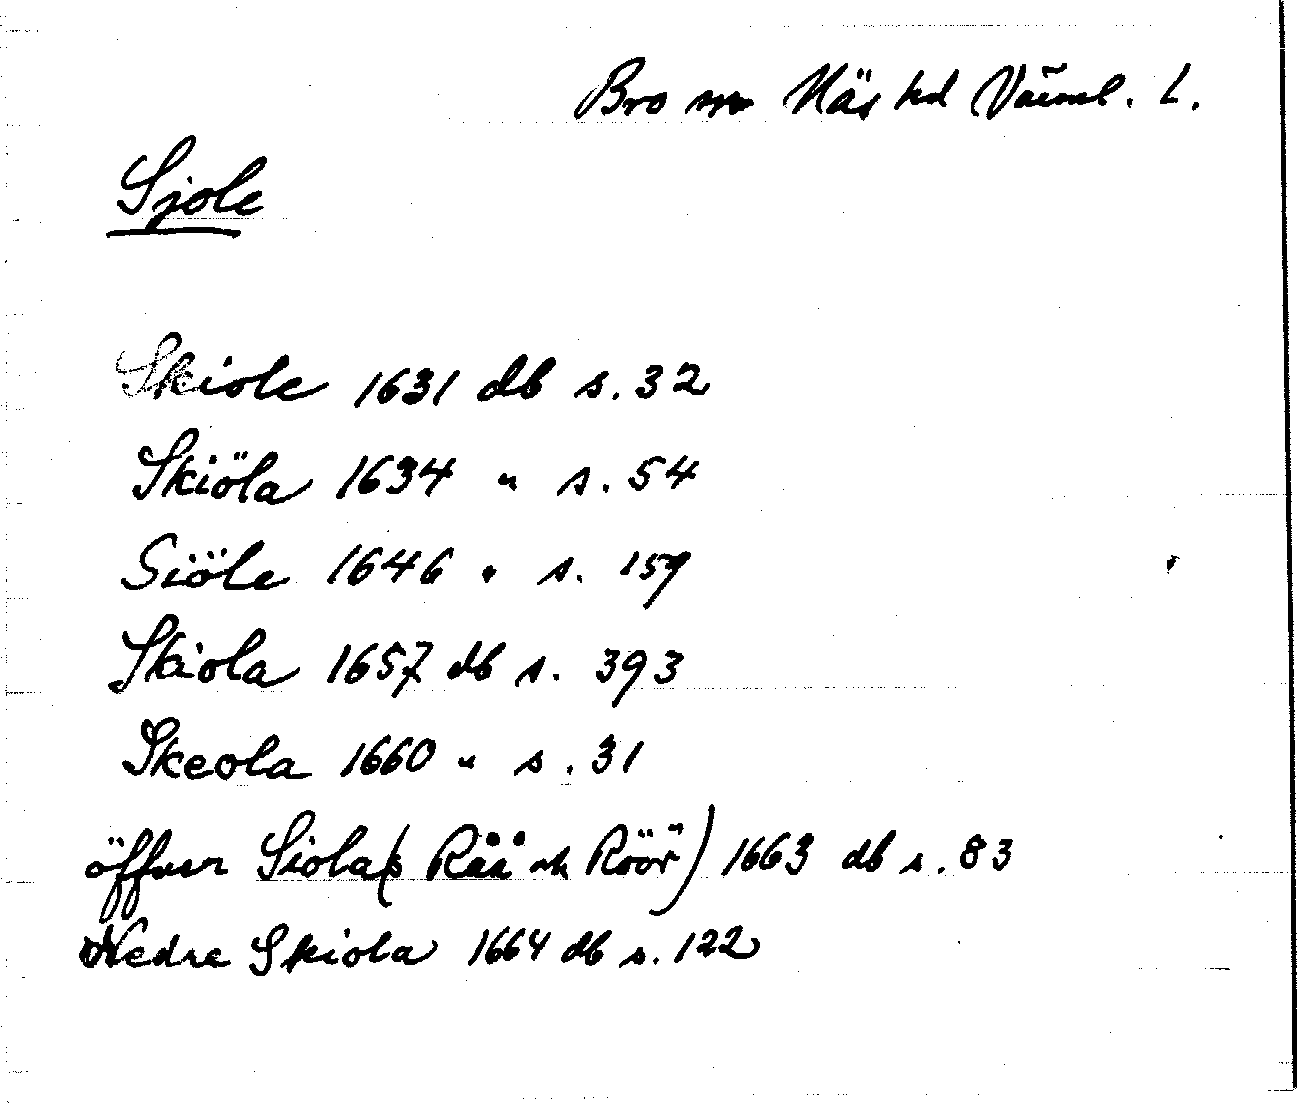 Bro sn Näs hd Värml. L.
Sjole
Skiole 1631 db s. 32
Skiöla 1634 " s. 54
Siöle 1646 " s. 159
Skiola 1657 db s. 393
Skeola 1660 " s. 31
öffuer Siola (Råå och Röör) 1663 db s. 83
Nedre Skiola 1664 db s. 122